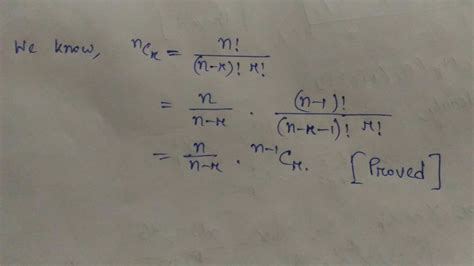 We know, ⁿCᵣ = n! / (n-r)! r!
= n / n-r · (n-1)! / (n-r-1)! r!
= n / n-r · ⁿ⁻¹Cᵣ. [Proved]